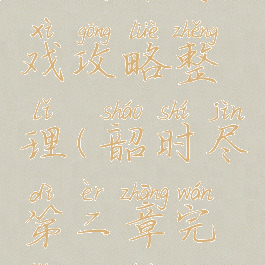 xì gōng lüè zhěng
戏攻略整
lǐ sháo shí jìn
理(韶时尽
dì èr zhāng wán
第二章完